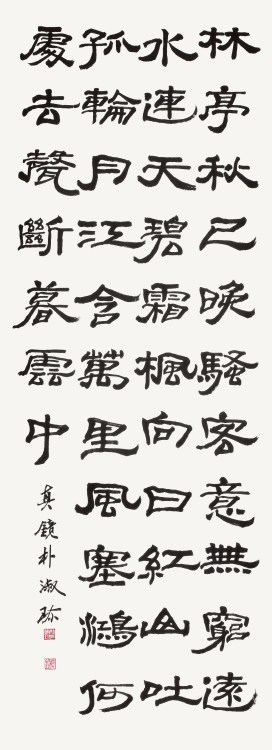 林亭秋已晚騷客意無窮遠
水連天碧霜楓向日紅山吐
孤輪月江含萬里風塞鴻何
處去聲斷暮雲中
真鏡朴淑珍